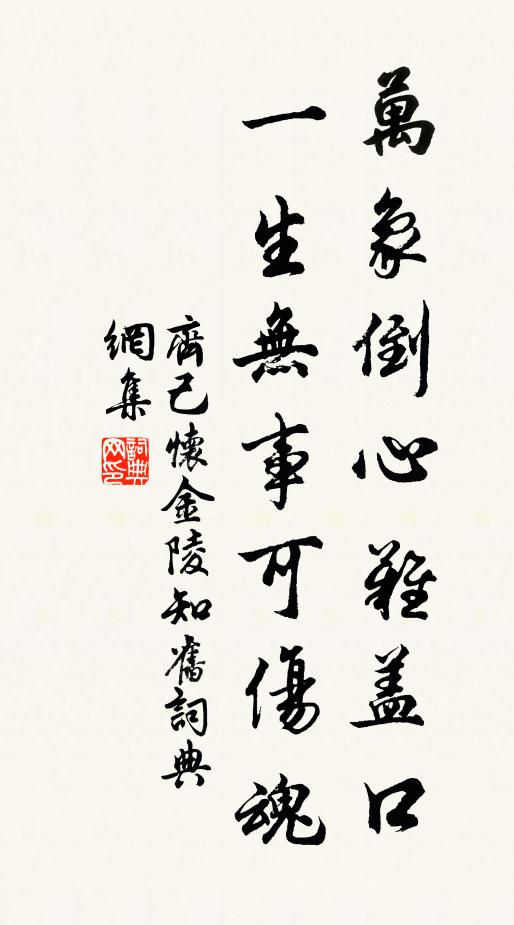 萬象倒心難蓋口
一生無事可傷魂
齊己懷金陵知舊詞典
網集
詞典
网印